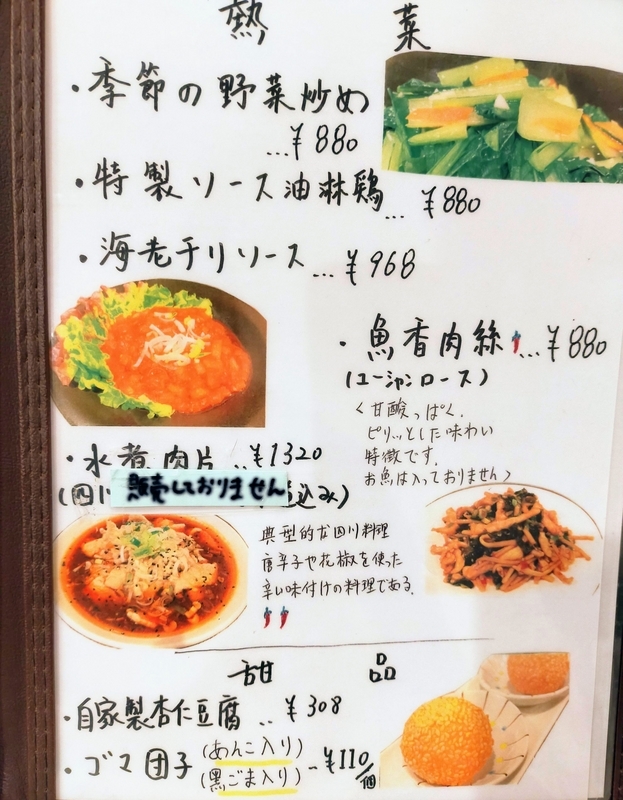 熱 菜
・季節の野菜炒め
…¥880
・特製ソース油淋鶏… ¥880
・海老チリソース… ¥968
・魚香肉絲…¥880
(ユーシャンロース)
〈甘酸っぱく、
ピリッとした味わい
特徴です。
お魚は入っておりません〉
・水煮肉片…¥1320
(四川 込み)
販売しておりません
典型的な四川料理
唐辛子や花椒を使った
辛い味付けの料理である。
甜 品
・自家製杏仁豆腐…¥308
・ゴマ団子(あんこ入り)
(黒ごま入り)-¥110/個